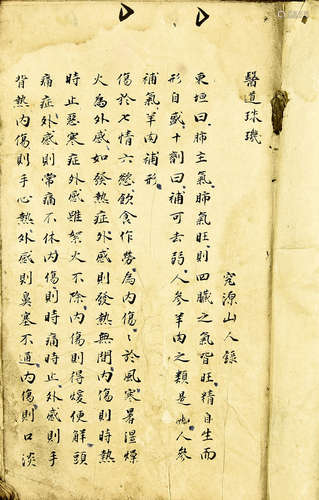 醫道珠璣
究源山人錄
東垣曰肺主氣肺氣旺則四臟之氣皆旺精自生而
形自盛十劑曰補可去弱人參羊肉之類是也人參
補氣羊肉補形
傷於七情六慾飲食作勞為內傷〻於風寒暑濕燥
火為外感如發熱症外感則發熱無間內傷則時熱
時止惡寒症外感雖絮火不除內傷則得煖便解頭
痛症外感則常痛不休內傷則時痛時止外感則手
背熱內傷則手心熱外感則鼻塞不通內傷則口淡